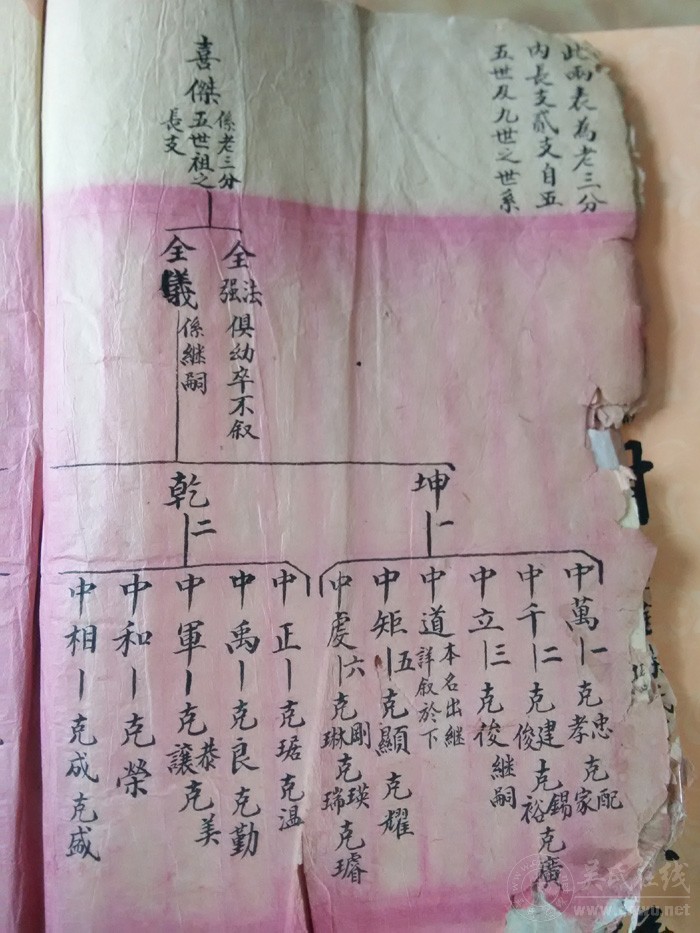 此兩表為老三分
內長支貳支自五
五世及九世之世系
喜傑
係老三分
五世祖之
長支
全法
强
俱幼卒不叙
全義
係継嗣
坤
一
乾
二
中萬一克忠
孝克配
家
中千二克建
俊克錫
裕克廣
中立三克俊継嗣
中道
本名出継
詳叙於下
中矩五克顯克耀
中虔六克剛
琳克瑛
瑞克璿
中正克琚克温
中禹克良克勤
中軍克恭
讓克美
中和克榮
中相克成克盛
吴氏在线
www.cnwu.net